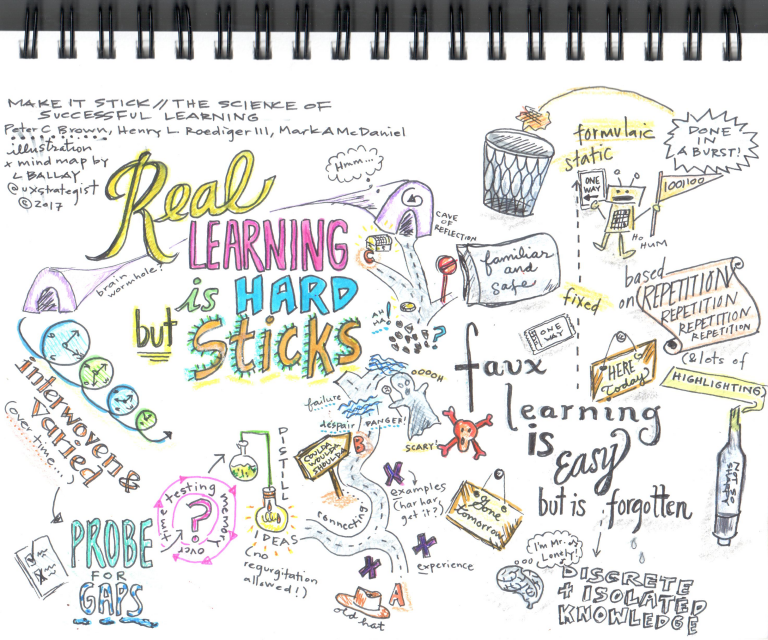 MAKE IT STICK // THE SCIENCE OF
SUCCESSFUL LEARNING
Peter C Brown, Henry L. Roediger III, Mark A McDaniel
illustration
+ mind map by
L BALLAY,
@uxstrategist
©2017
Real
LEARNING
is HARD
but Sticks
Hmm...
CAVE
OF
REFLECTION
brain
wormhole?
C
AH
HA!
!
?
interwoven &
varied
(over time...)
PROBE
FOR
GAPS
testing memory
over time
?
DISTILL
IDEAS
(no
regurgitation
allowed!)
failure
despair
DANGER!
OOOOH
SCARY!
COULDA
WOULDA
SHOULDA
B
connecting
X
examples
(har har,
get it?)
experience
A
old hat
formulaic
static
DONE
IN
A BURST!
ONE
WAY
1001100
HO
HUM
familiar
and
safe
fixed
ONE
WAY
based
on
REPETITION
REPETITION
REPETITION
REPETITION
(& lots of
HIGHLIGHTING)
HERE
Today
NOT SO
SHARPY
faux
learning
is
easy
but is forgotten
Gone
tomorrow
I'm Mr.
Lonely
DISCRETE
+ ISOLATED
KNOWLEDGE